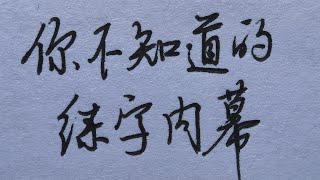 你不知道的
练字内幕